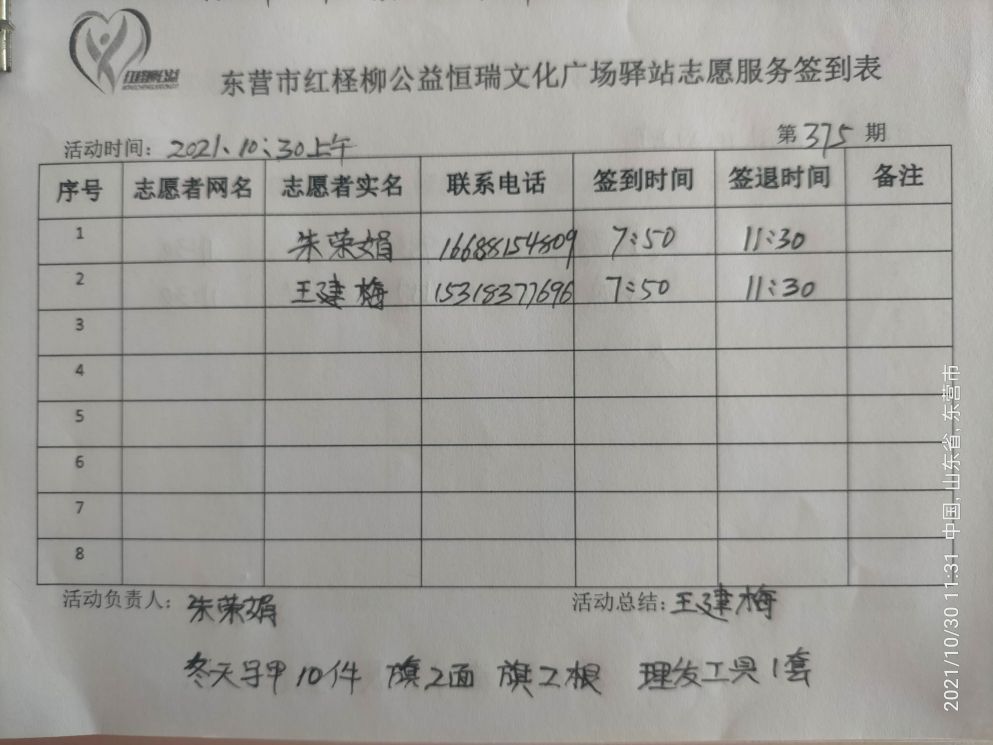 东营市红柽柳公益恒瑞文化广场驿站志愿服务签到表
活动时间: 2021、10:30上午 第375期
序号 志愿者网名 志愿者实名 联系电话 签到时间 签退时间 备注
1 朱荣娟 16688154809 7:50 11:30
2 王建梅 15318377696 7:50 11:30
3
4
5
6
7
8
活动负责人: 朱荣娟 活动总结: 王建梅
冬天马甲10件 旗2面 旗2根 理发工具1套
2021/10/30 11:31 中国, 山东省, 东营市